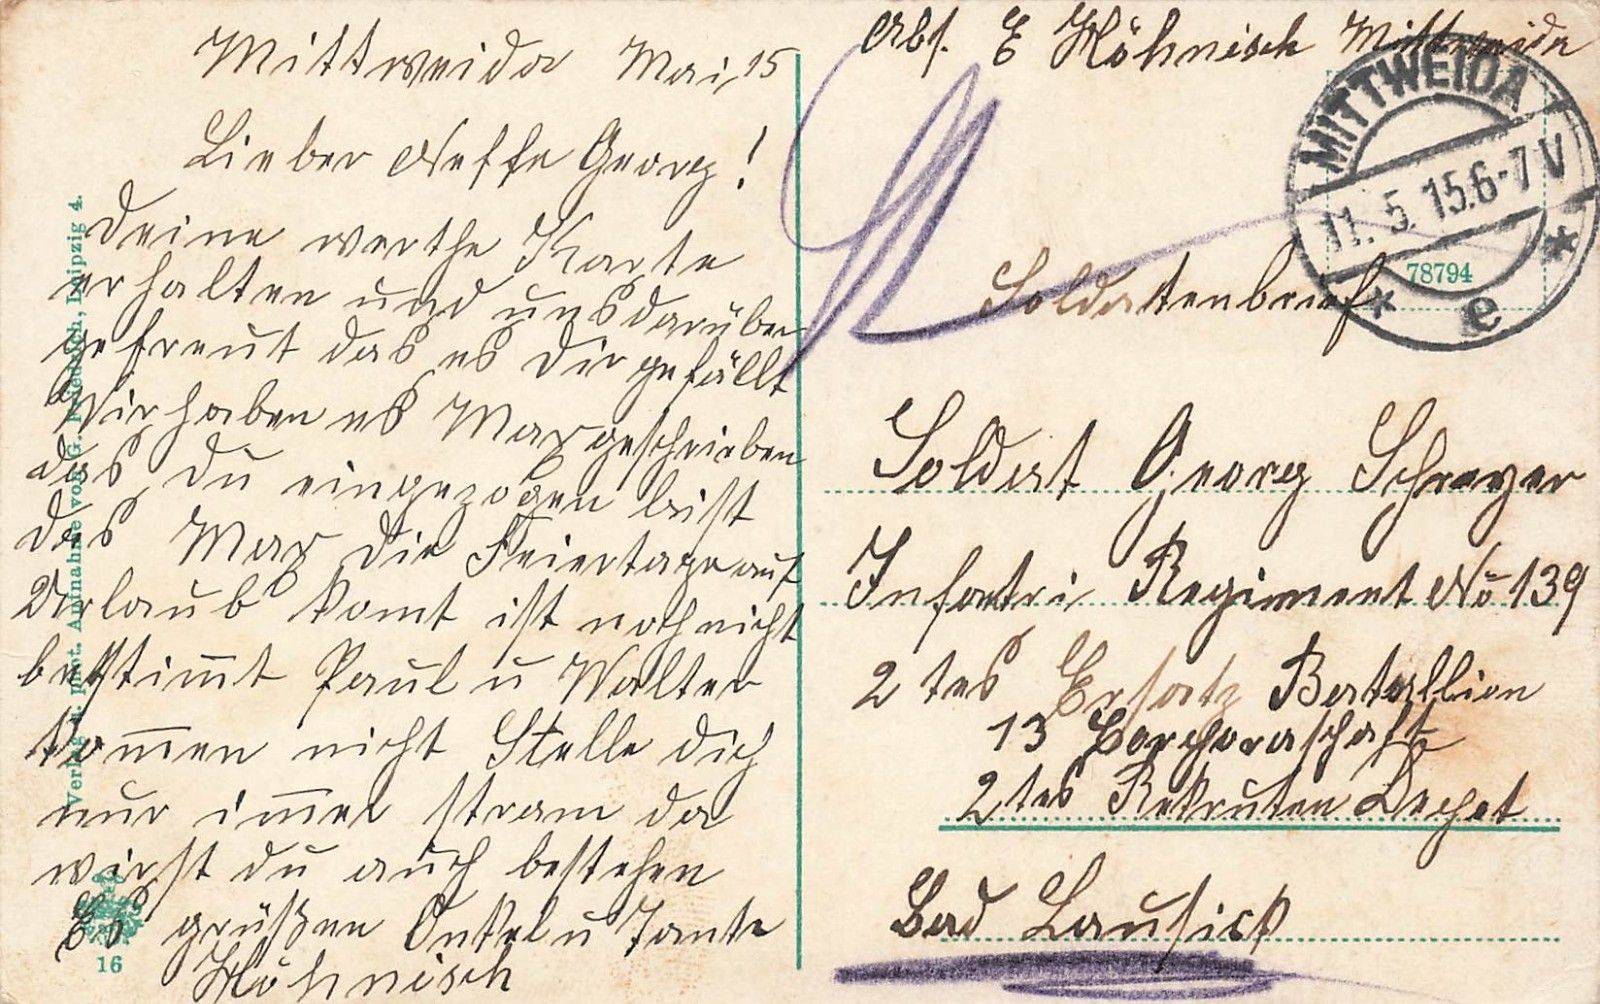 Mittweida Mai 15
Lieber Neffe Georg!
Deine werthe Karte
erhalten und uns darüber
gefreut das es Dir gefällt
Wir haben es Max geschrieben
das Du eingezogen bist
das Max die Feiertage auf
Urlaub komt ist noch nicht
bestimmt Paul u Walter
kommen nicht Stelle dich
nur immer stram da
wirst du auch bestehen
Es grüßen Onkel u Tante
Höhnisch
Verlag u. phot. Aufnahme von G. Friedrich, Leipzig 4.
16
Abs. E Höhnisch Mittweida
MITTWEIDA
11. 5. 15. 6-7 V
* e *
78794
Soldatenbrief
Soldat Georg Schreyer
Infantri Regiment No 139
2 tes Ersatz Batallion
13 Corporaschaft
2 tes Rekruten Depot
Bad Lausick